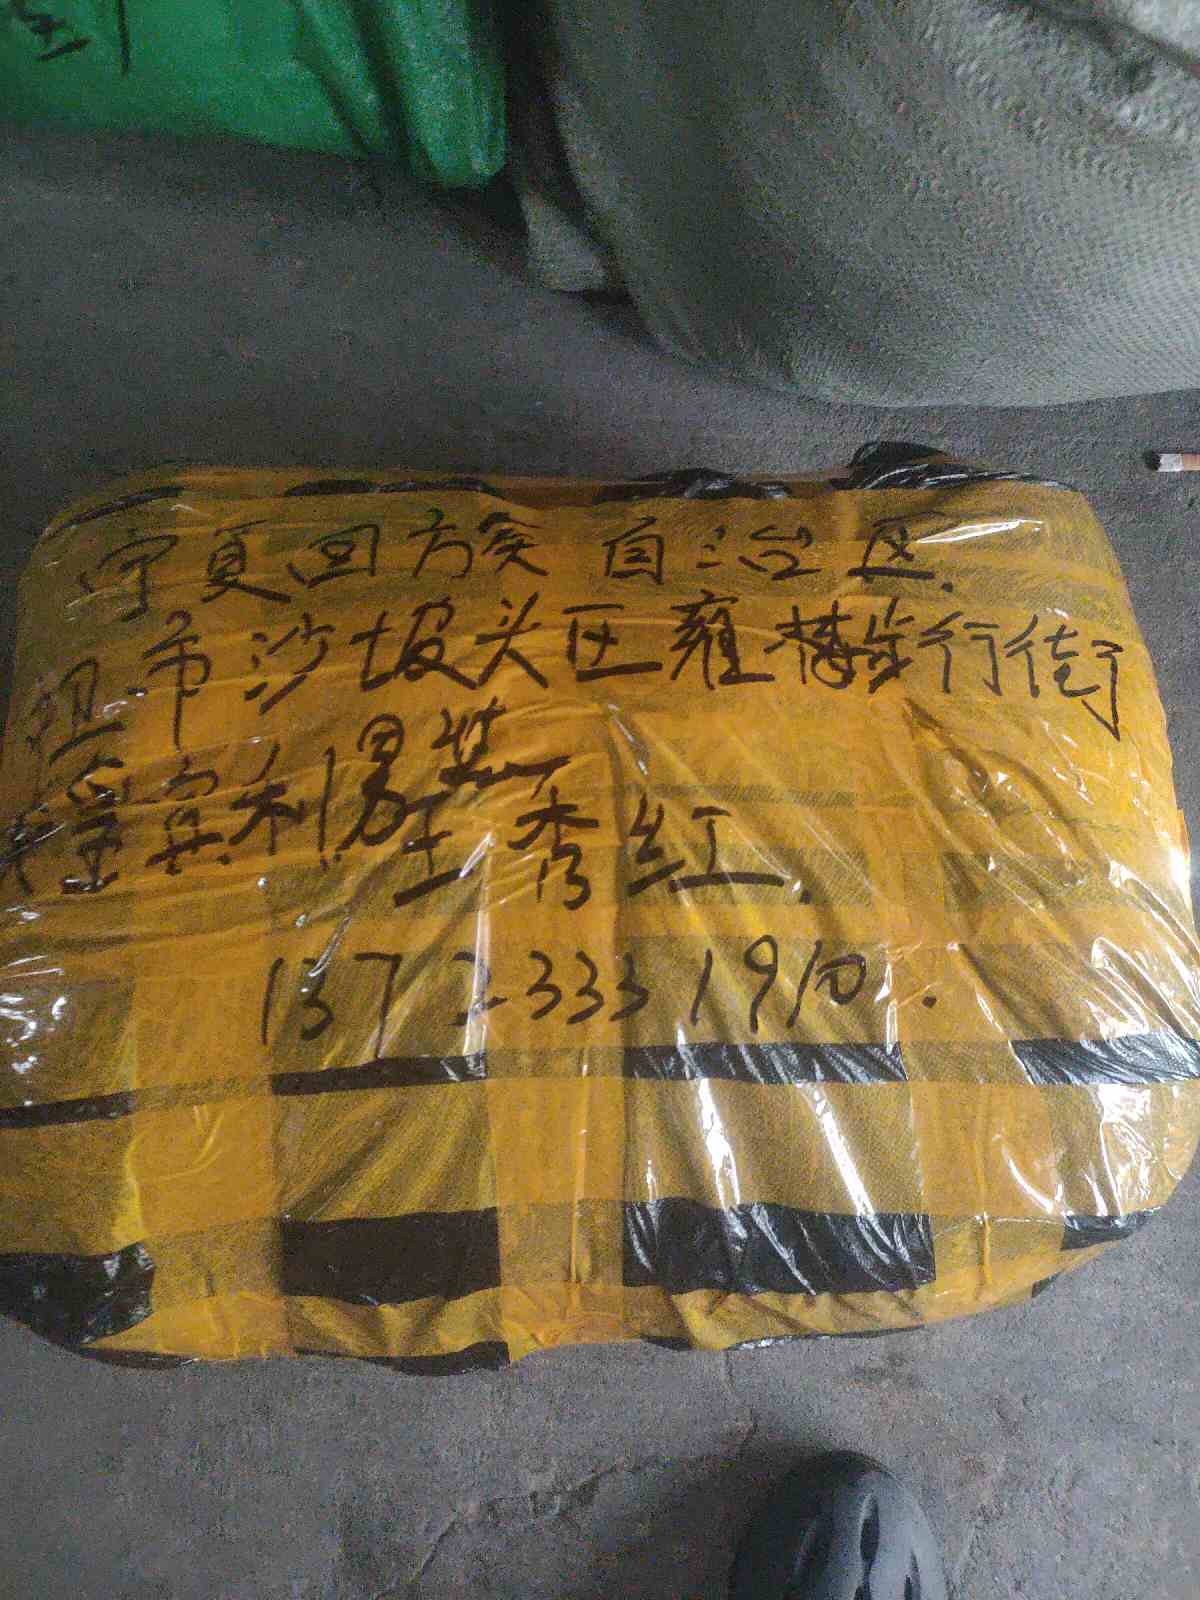 宁夏回族自治区
市沙坡头区雍楼步行街
宾利男装
王秀红
137 2333 1910.